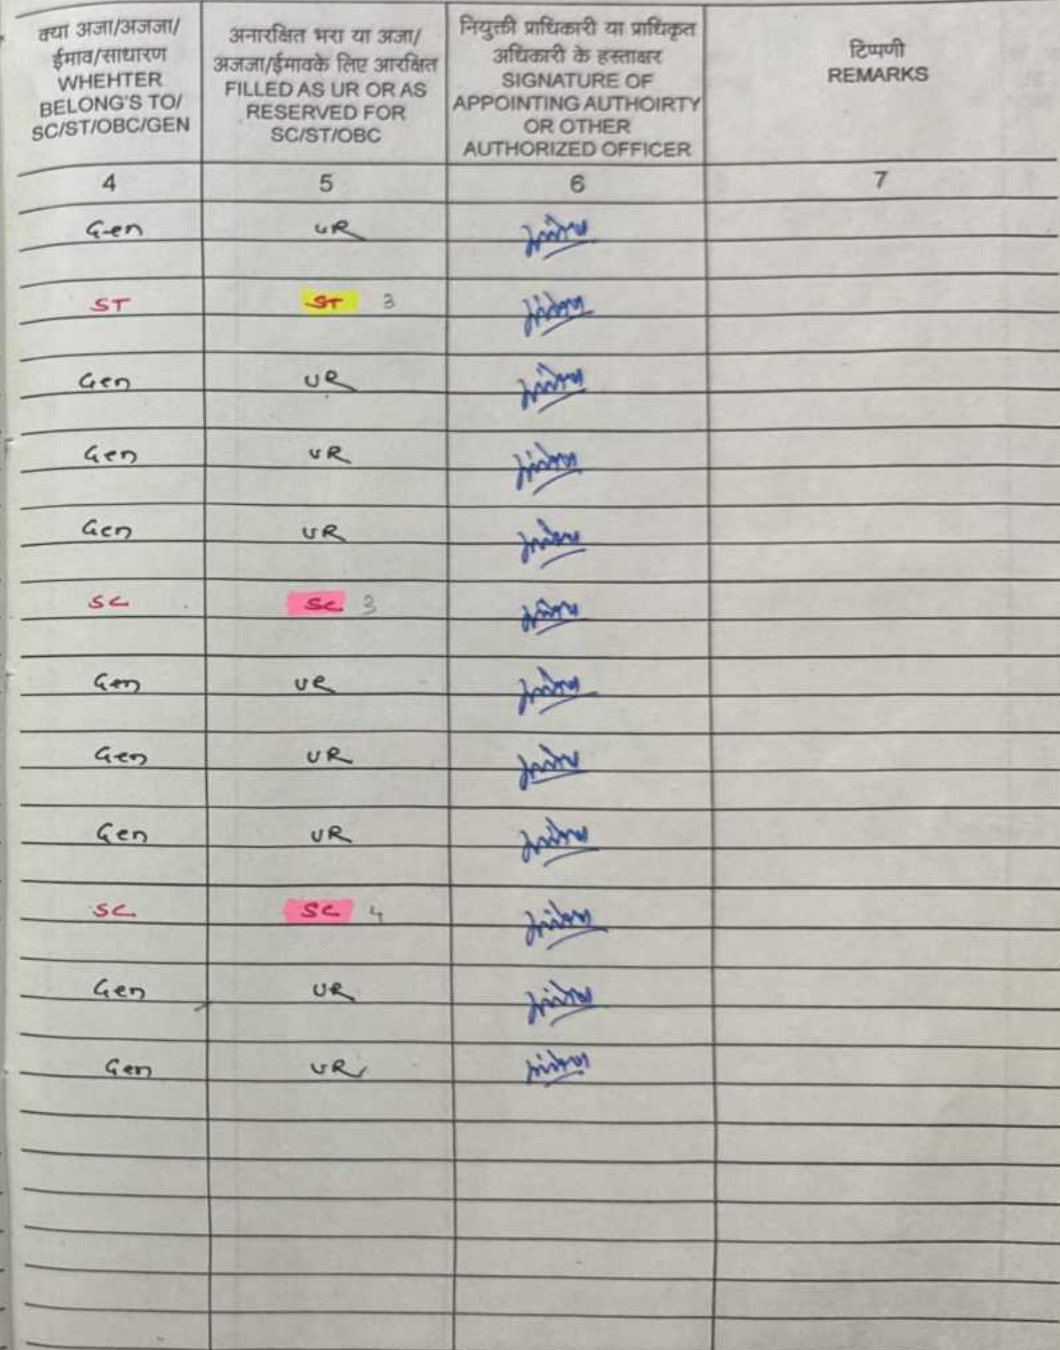 क्या अजा/अजजा/
ईमाव/साधारण
WHEHTER
BELONG'S TO/
SC/ST/OBC/GEN
अनारक्षित भरा या अजा/
अजजा/ईमावके लिए आरक्षित
FILLED AS UR OR AS
RESERVED FOR
SC/ST/OBC
नियुक्ती प्राधिकारी या प्राधिकृत
अधिकारी के हस्ताक्षर
SIGNATURE OF
APPOINTING AUTHOIRTY
OR OTHER
AUTHORIZED OFFICER
टिप्पणी
REMARKS
4 5 6 7
Gen UR
ST ST 3
Gen UR
Gen UR
Gen UR
SC SC 3
Gen UR
Gen UR
Gen UR
SC SC 4
Gen UR
Gen UR